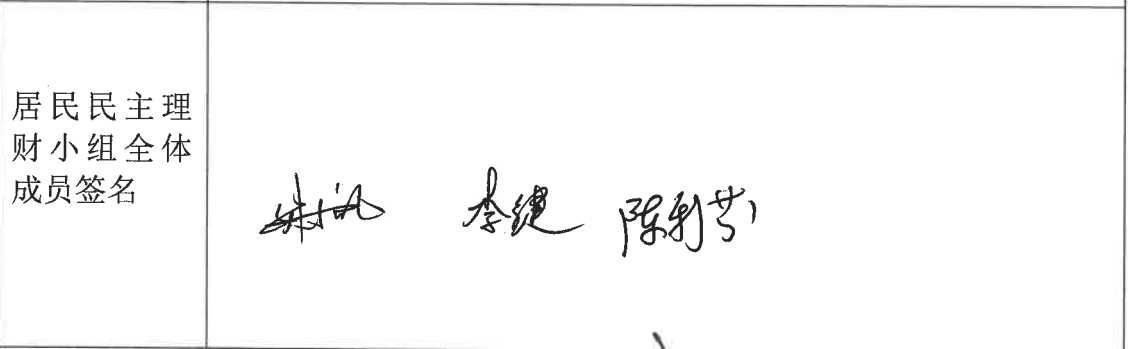 居民民主理
财小组全体
成员签名
李健 陈利芬